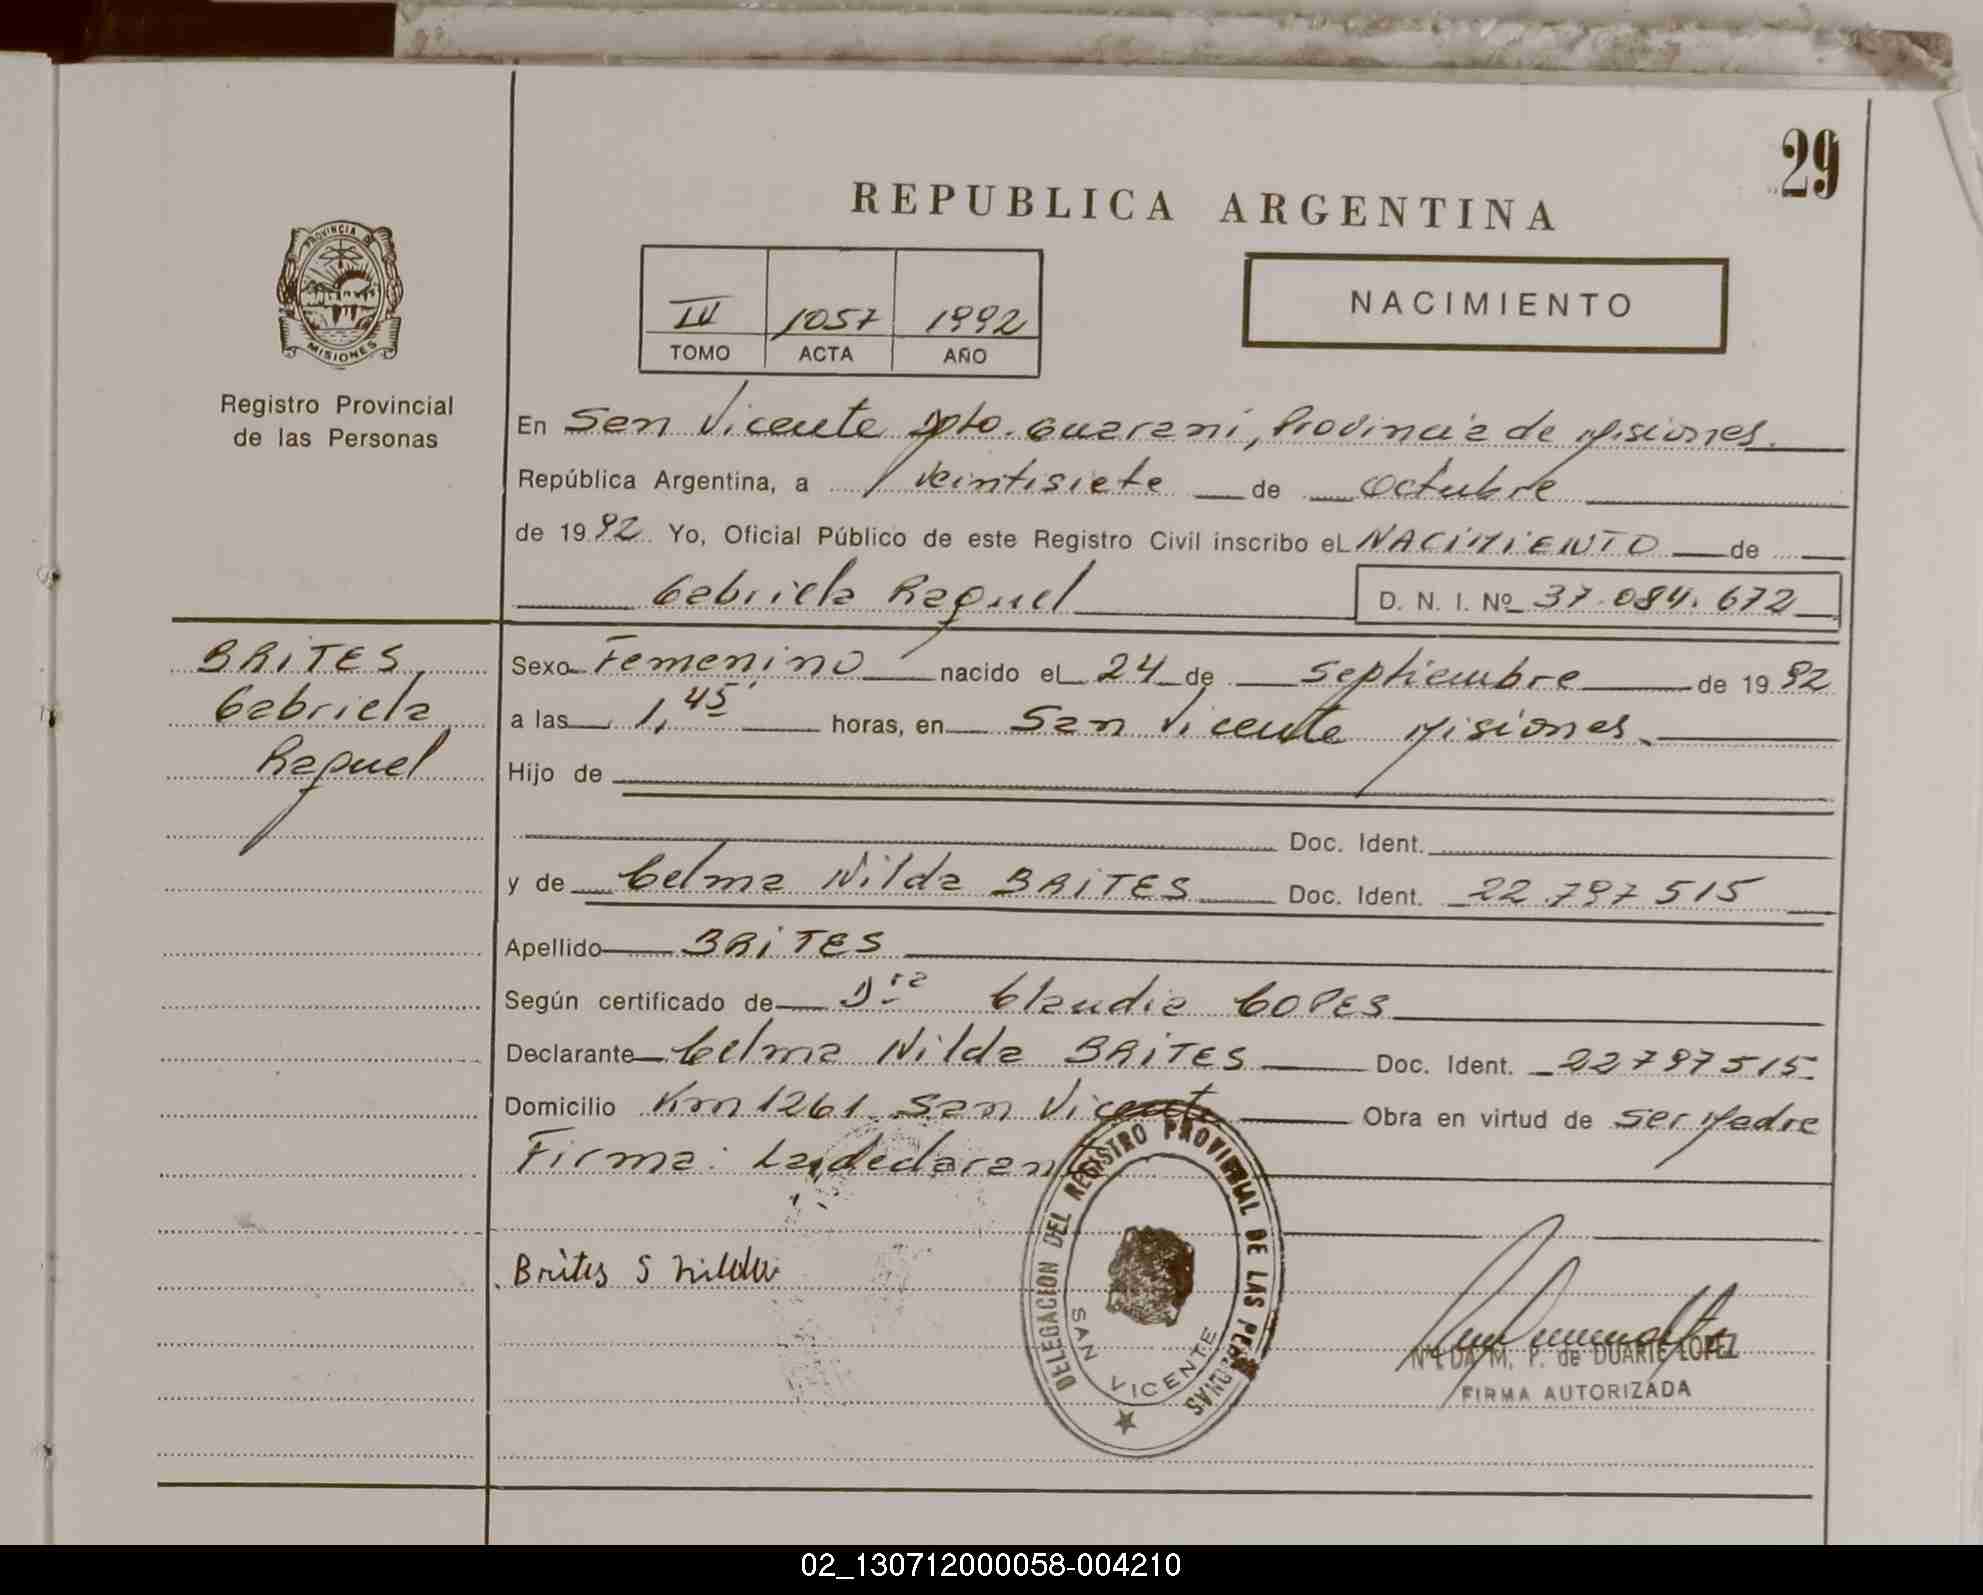 29
REPUBLICA ARGENTINA
PROVINCIA DE
MISIONES
Registro Provincial
de las Personas
IV 1057 1992
TOMO ACTA AÑO
NACIMIENTO
En San Vicente Dpto. Guarani, Provincia de Misiones.
República Argentina, a veintisiete de Octubre
de 1992 Yo, Oficial Público de este Registro Civil inscribo el NACIMIENTO de
Gabriela Raquel D. N. I. Nº 37.084.672
BRITES
Gabriela
Raquel
Sexo Femenino nacido el 24 de Septiembre de 1992
a las 1,45 horas, en San Vicente Misiones.
Hijo de
Doc. Ident.
y de Celma Nilda BRITES Doc. Ident. 22.797515
Apellido BRITES
Según certificado de Dra Claudia COPES
Declarante Celma Nilda BRITES Doc. Ident. 22797515
Domicilio Km 1261 San Vicente Obra en virtud de ser Madre
Firma: La declaran
Brites S nilda
DELEGACION DEL REGISTRO PROVINCIAL DE LAS PERSONAS
SAN VICENTE
M. P. de DUARTE LOPEZ
FIRMA AUTORIZADA
02_130712000058-004210